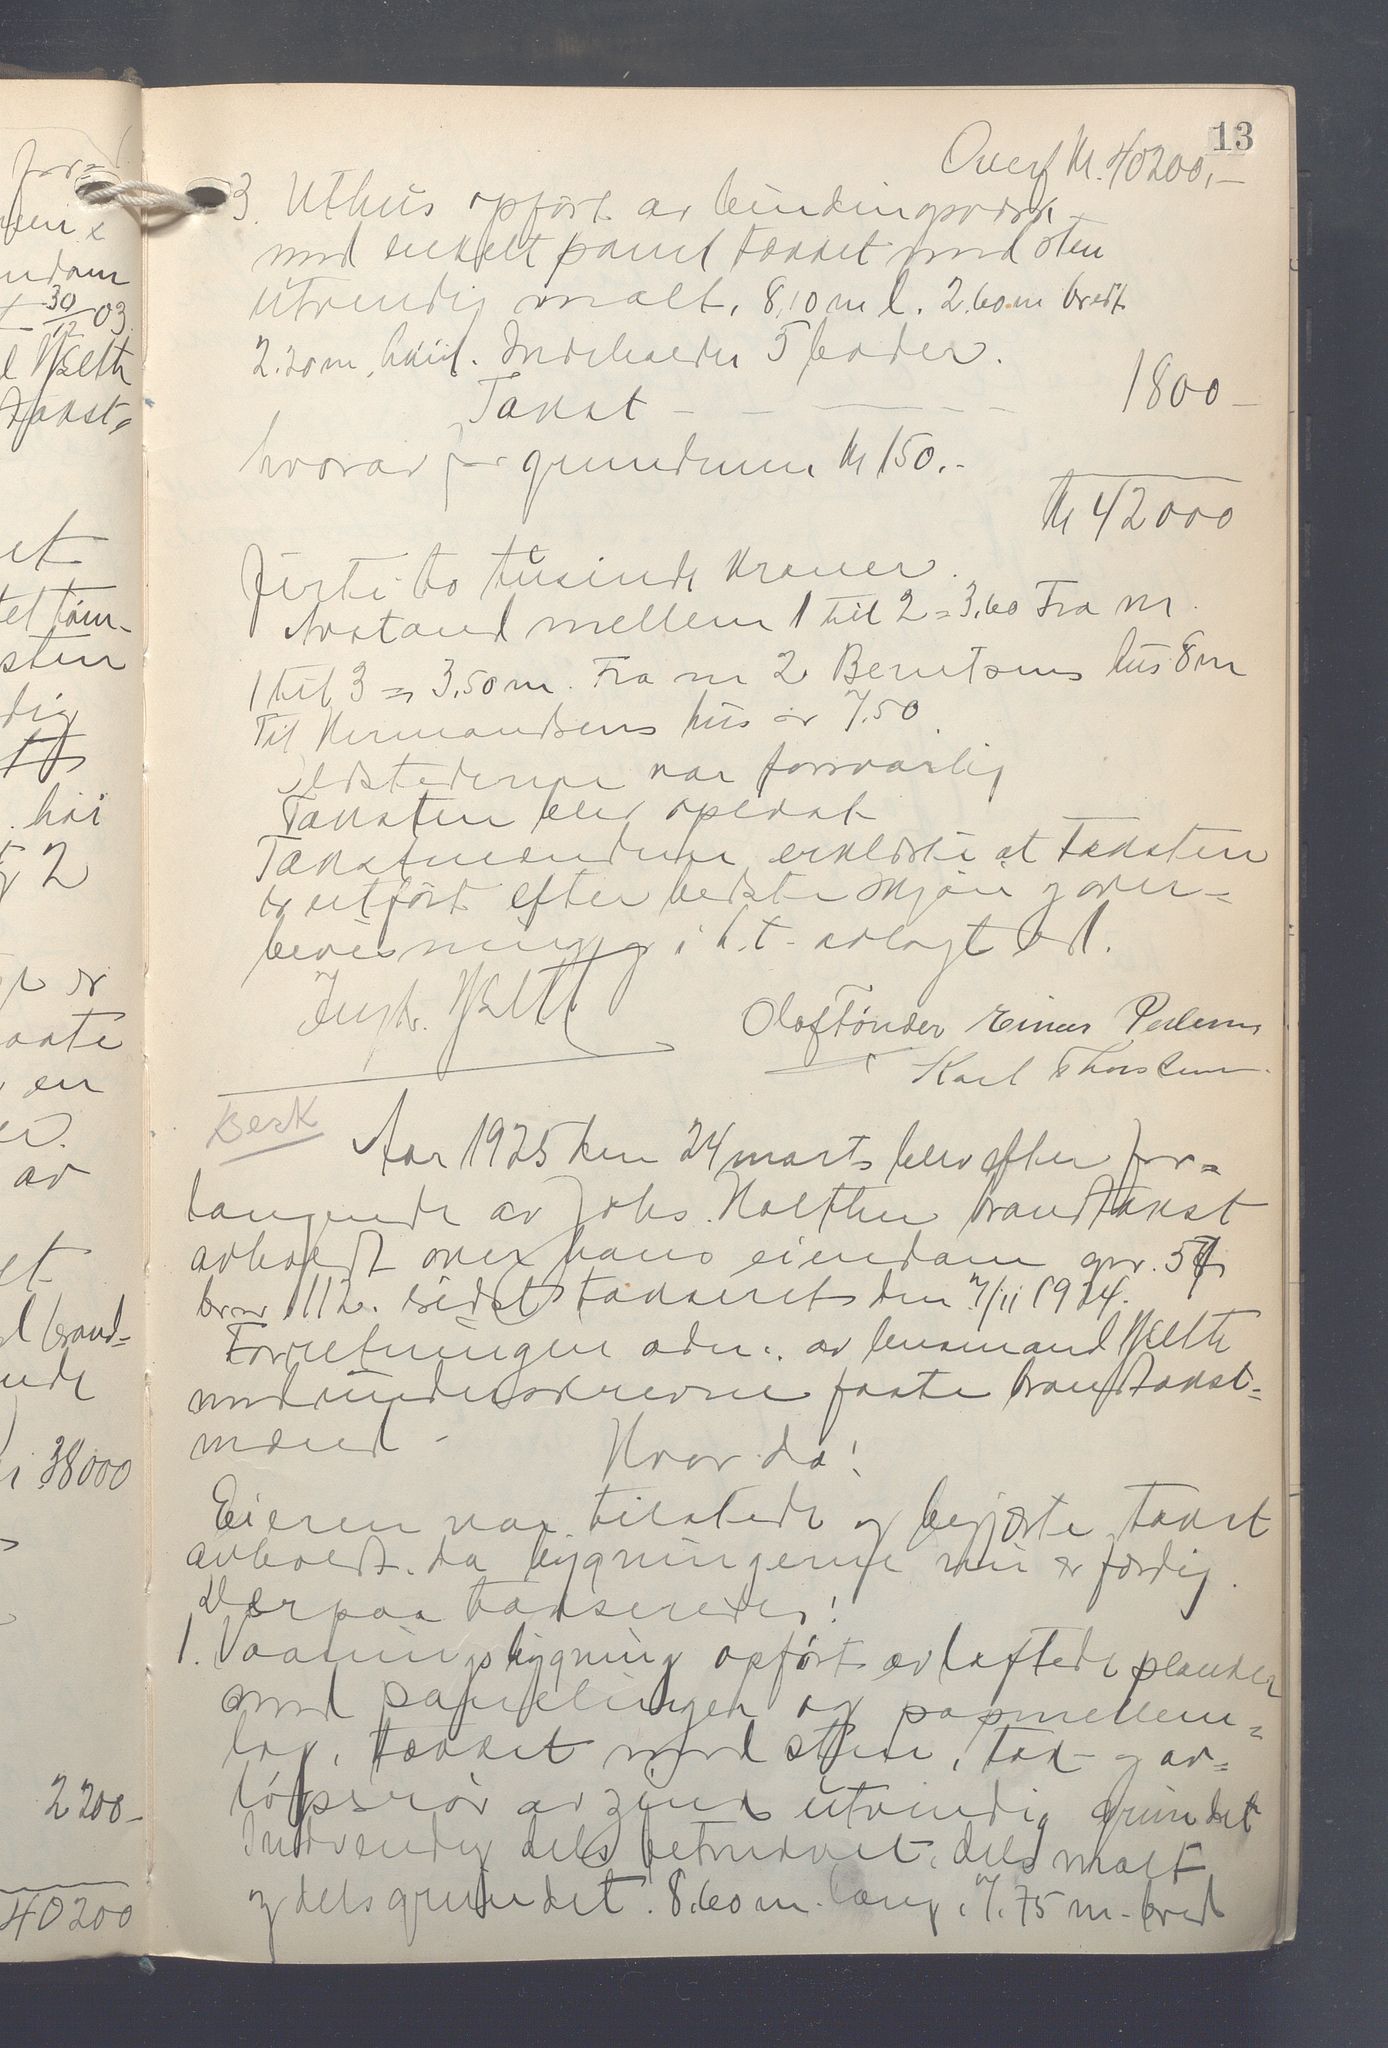 for=
30/12 03
Hjelth
takst,
et
sten
dig
høi
2
er
en
av
et
brand=
38000
2200-
40200
13
Overf Kr. 40200,-
3. Uthus opført av bindingsværk
med enkelt panel tækket med sten
utvendig malt. 8,10 m l. 2.60 m bredt
2.20 m. høit. Indeholder 5 boder.
Takst - - - - 1800 -
hvorav for grundmur Kr 150.-
Kr 42000
Firti to tusinde kroner.
Avstand mellem 1 til 2 = 3,60 Fra nr.
1 til 3 = 3,50 m. Fra nr 2 Berntsens hus 8 m
Til Hermandsens hus er 7.50
Ildstederne var forsvarlig
Taksten blev oplæst
Takstmændene erklærte at taksten
er utført efter bedste skjøn og over=
bevisning i h.t. avlagt ed.
Hjelth
Olaf Tønder Einar Pedersen
Karl Thorsen
Besk
Aar 1925 den 24 marts blev efter for=
langende av Johs. Holthen brandtakst
avholdt over hans eiendom gnr. 57
bnr 112. sidst taksert den 7/11 1924.
Forretningen adm. av lensmand Hjelth
med underskrevne faste brandtakst=
mænd -
Hvor da!
Eieren var tilstede og begjærte takst
avholdt. da bygningerne nu er færdig.
Derpaa takseredes!
1. Vaaningsbygning opført av laftede planker
med panelinger og papmellem=
lag, tækket med sten, tak- og av=
løpsrør av zink utvendig grundet
Indvendig dels betrukket, dels malt
og dels grundet. 8.60 m. lang, 7.75 m. bred